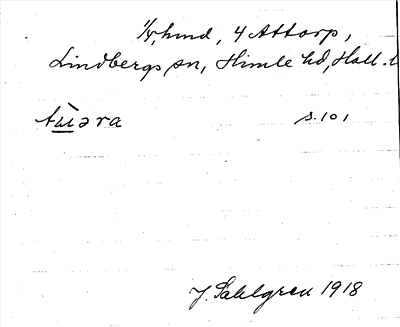 1/4, hmd, 4 Attorp,
Lindbergs sn, Himle hd, Hall. l
s. 101
J. Sahlgren 1918